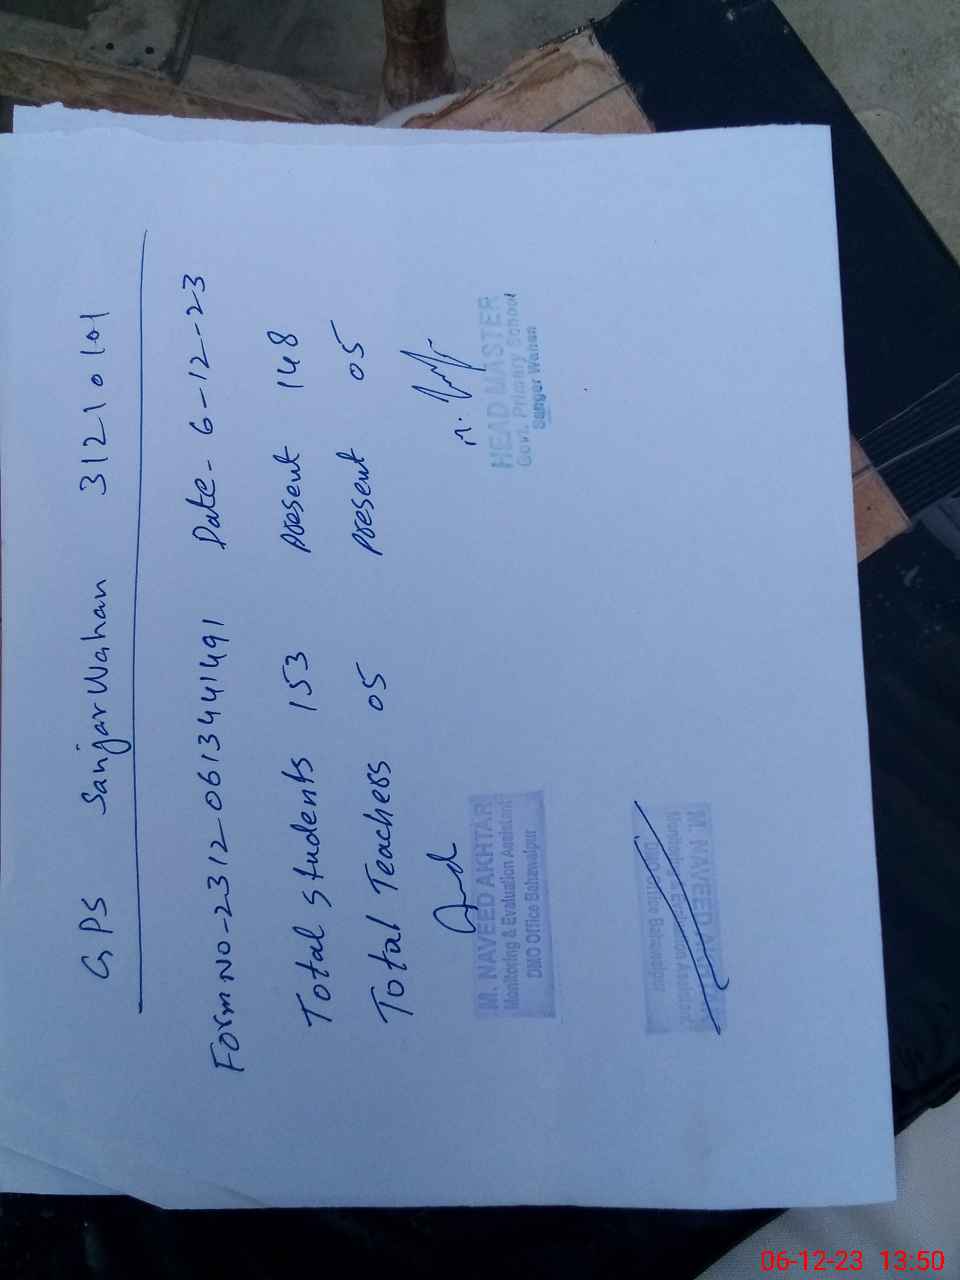 GPS Sanjar Wahan 31210101
Form No-23120613441491 Date-6-12-23
Total Students 153 present 148
Total Teachers 05 present 05
M. NAVEED AKHTAR
Monitoring & Evaluation Assistant
DMO Office Bahawalpur
HEAD MASTER
Govt. Primary School
Sanger Wahan
M. NAVEED
Monitoring & Evaluation Assistant
DMO Office Bahawalpur
06-12-23 13:50